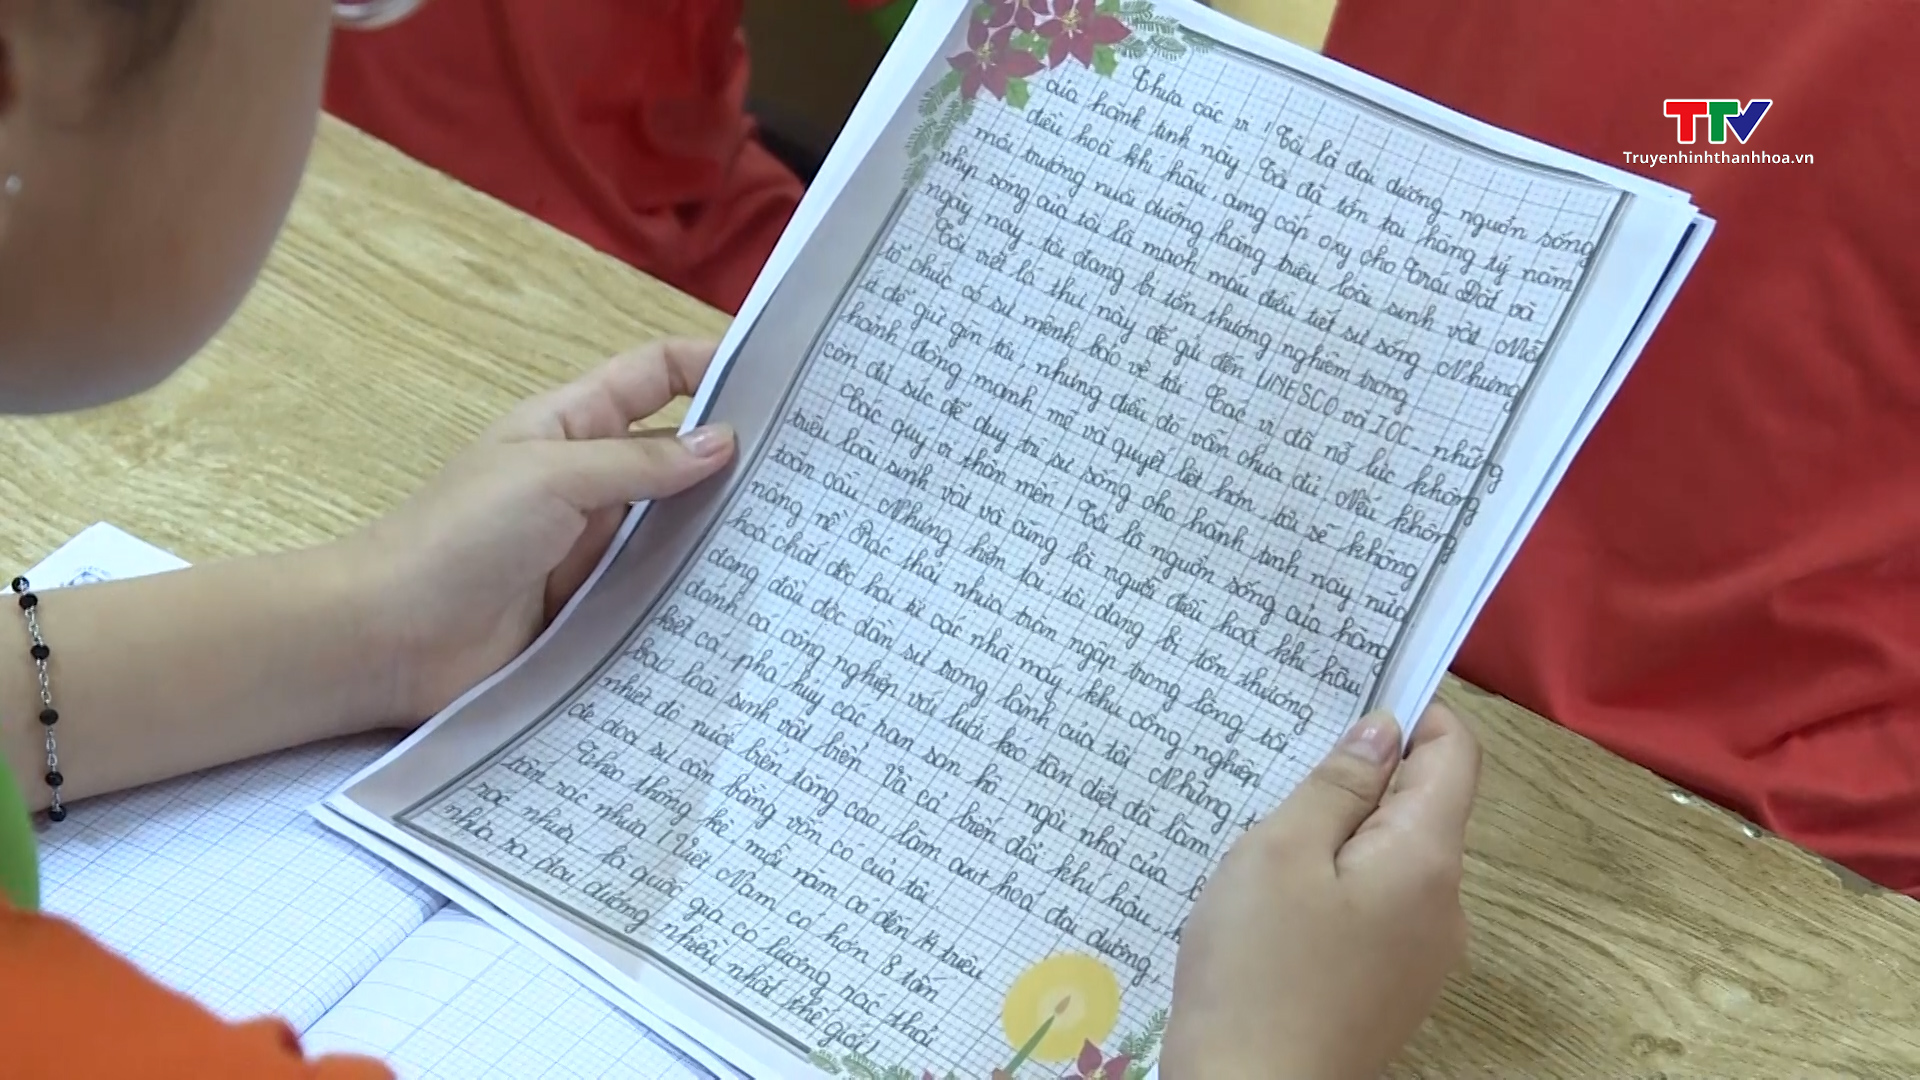 TTV
Truyenhinhthanhhoa.vn
Thưa các vị ! Tôi là đại dương, nguồn sống
của hành tinh này. Tôi đã tồn tại hàng tỷ năm
điều hoà khí hậu, cung cấp oxy cho Trái Đất và
môi trường nuôi dưỡng hàng triệu loài sinh vật. Mỗi
nhịp sống của tôi là mạch máu điều tiết sự sống. Nhưng
ngày nay, tôi đang bị tổn thương nghiêm trọng.
Tôi viết lá thư này để gửi đến UNESCO và IOC - những
tổ chức có sứ mệnh bảo vệ tôi. Các vị đã nỗ lực không
ít để giữ gìn tôi, nhưng điều đó vẫn chưa đủ. Nếu không
hành động mạnh mẽ và quyết liệt hơn, tôi sẽ không
còn đủ sức để duy trì sự sống cho hành tinh này nữa.
Các quý vị thân mến ! Tôi là nguồn sống của hàng
triệu loài sinh vật và cũng là người điều hoà khí hậu
toàn cầu. Nhưng hiện tại, tôi đang bị tổn thương
nặng nề. Rác thải nhựa tràn ngập trong lòng tôi,
hoá chất độc hại từ các nhà máy, khu công nghiệp
đang đầu độc dần sự trong lành của tôi. Những
đánh cá công nghiệp với lưới kéo tận diệt đã làm
kiệt cá, phá hủy các rạn san hô - ngôi nhà của
bao loài sinh vật biển. Và cả biến đổi khí hậu,
nhiệt độ nước biển tăng cao, làm axit hoá đại dương,
đe doạ sự cân bằng vốn có của tôi.
Theo thống kê, mỗi năm có đến 14 triệu
tấn rác nhựa ! Việt Nam có hơn 8 tấn
rác nhựa - là quốc gia có lượng rác thải
nhựa ra đại dương nhiều nhất thế giới !